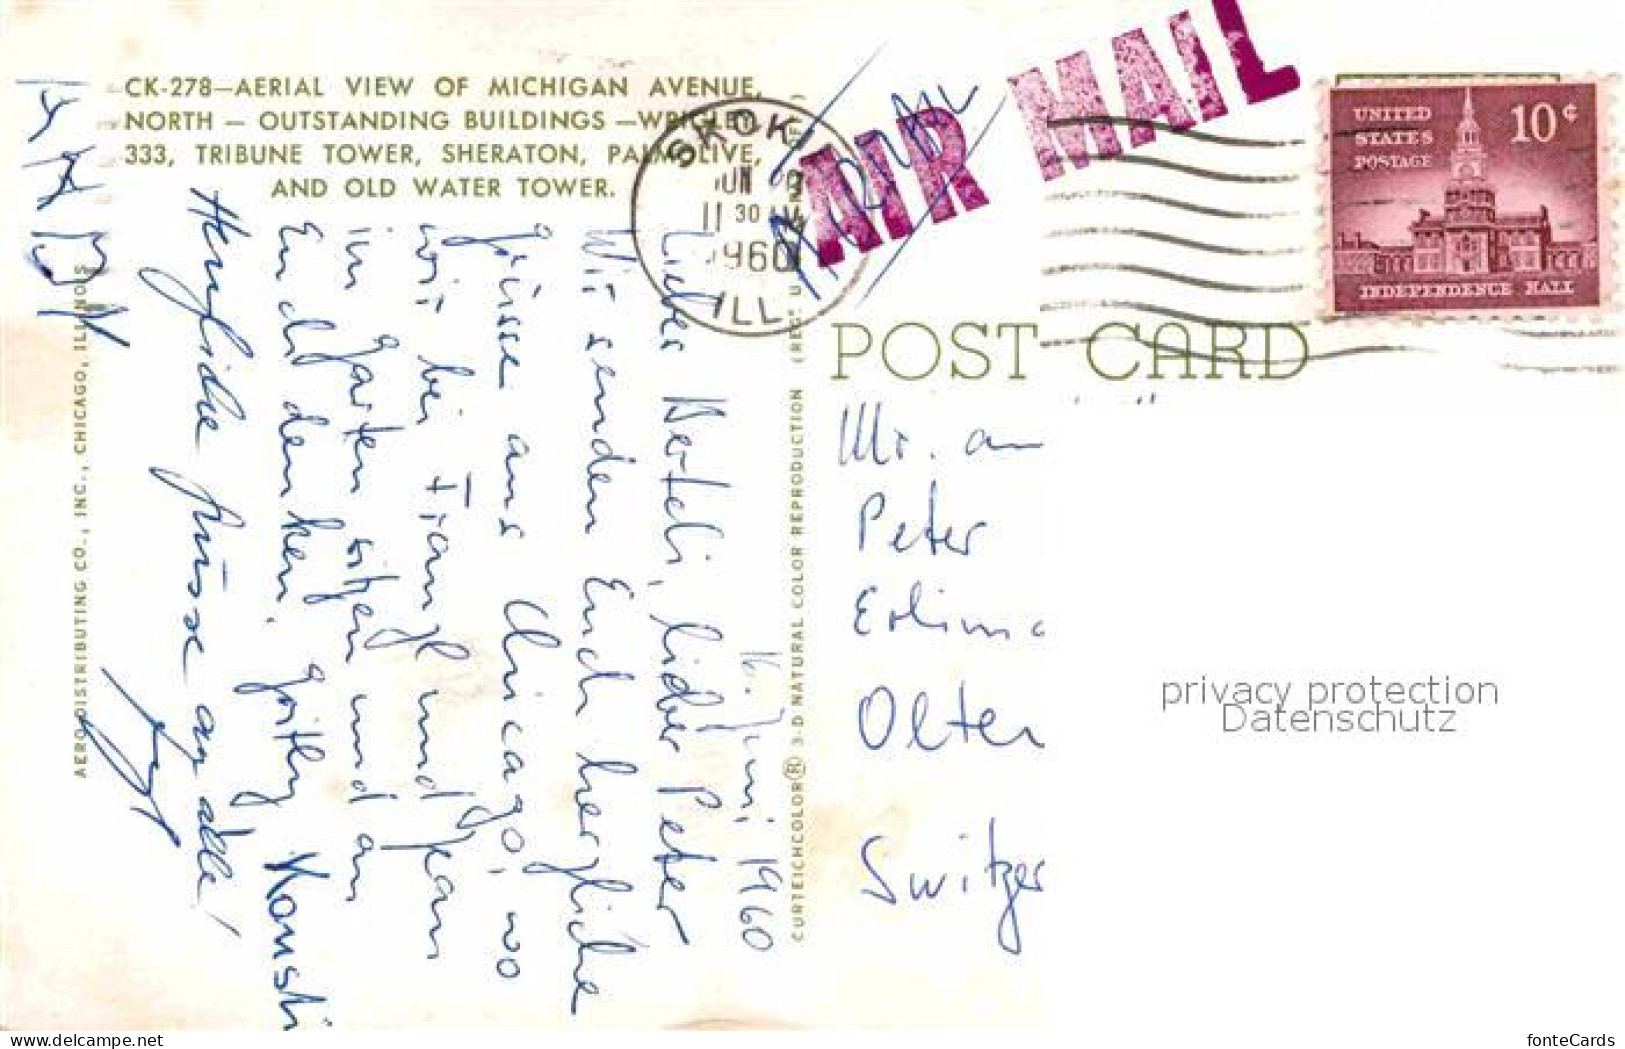 CK-278—AERIAL VIEW OF MICHIGAN AVENUE,
NORTH — OUTSTANDING BUILDINGS —WRIGLEY
333, TRIBUNE TOWER, SHERATON, PALMOLIVE,
AND OLD WATER TOWER.
AIR MAIL
SKOKI
JUN
11 30 AM
1960
ILL
UNITED
STATES
POSTAGE
10¢
INDEPENDENCE HALL
POST CARD
16. Juni 1960
Lieber Berteli, lieber Peter
Wir senden Euch herzliche
Grüsse aus Chicago, wo
wir bei Franzl und Jean
im Garten sitzen und an
Euch denken.
Herzliche Grüsse an alle!
Mr. an
Peter
Olten
Switzer
AERO DISTRIBUTING CO., INC., CHICAGO, ILLINOIS
CURTEICHCOLOR® 3-D NATURAL COLOR REPRODUCTION (REG. U
privacy protection
Datenschutz
delcampe.net
fonteCards